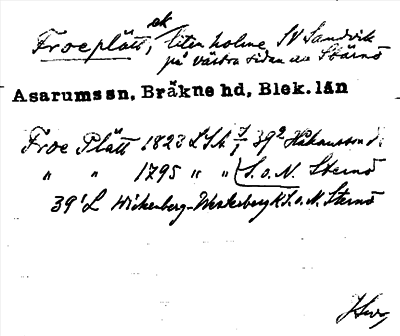 Froeplätt, sk liten holme SV Sandvik
på västra sidan av Stärnö
Asarums sn, Bräkne hd, Blek. län
Froe Plätt 1823 LSA 39² Håkansson
" " 1795 " " S. o. N. Sternö
39'L Wickenberg-Westerberg K S. o. N. Sternö